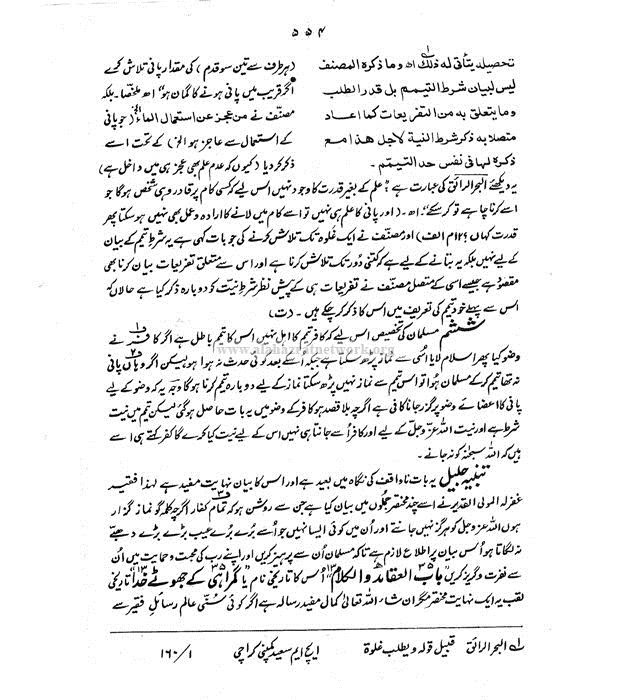 ۵۵۴
تحصیله یتأتی له ذلك اھ وما ذکرہ المصنف
لیس لبیان شرط التیمم بل قدر الطلب
وما یتعلق به من التفریعات کما اعاد
متصلا به ذکر شرط النیة لاجل هذا مع
ذکرہ لها فی نفس حد التیتم۔
(ہر طرف سے تین سو قدم) کی مقدار پانی تلاش کرے
اگر قریب میں پانی ہونے کا گمان ہو" اھ ملخصا۔ بلکہ
مصنّف نے من عجز عن استعمال الماء الخ (جو پانی
کے استعمال سے عاجز ہو الخ) کے تحت اسے
ذکر کردیا (کیوں کہ عدم علم بھی عجز ہی میں داخل ہے)
یہ دیکھئے البحرالرائق کی عبارت ہے؟ علم کے بغیر قدرت کا وجود نہیں اس لیے کہ کسی کام پر قادر وہی شخص ہوگا جو
اسے کرنا چاہے تو کرسکے" اھ۔ (اور پانی کا علم ہی نہیں تو اسے کام میں لانے کا ارادہ وعمل بھی نہیں ہوسکتا پھر
قدرت کہاں؟ ۱۲م الف) اور مصنف نے ایک غَلوہ تک تلاش کرنے کی جو بات کہی ہے یہ شرط تیمم کے بیان
کے لیے نہیں بلکہ یہ بتانے کے لیے ہے کہ کتنی دُور تک تلاش کرنا ہے اور اس سے متعلق تفریعات بیان کرنا بھی
مقصود ہے جیسے اسی کے متصل مصنف نے تفریعات ہی کے پیش نظر شرطِ نیت کو دوبارہ ذکر کیا ہے حالاں کہ
اس سے پہلے خود تیمم کی تعریف میں اس کا ذکر کرچکے ہیں۔ (ت)
ششم مسلمان کی تخصیص اس لیے کہ کافر تیمم کا اہل نہیں اس کا تیمم باطل ہے اگر کافر نے
وضو کیا پھر اسلام لایا اُسی سے نماز پڑھ سکتا ہے جبکہ اسکے بعد کوئی حدث نہ ہوا ہو لیکن اگر وہاں پانی
نہ تھا تیمم کرکے مسلمان ہُوا تو اس تیمم سے نماز نہیں پڑھ سکتا نماز کے لیے دوبارہ تیمم کرنا ہوگا وجہ یہ کہ وضو کے لیے
پانی کا اعضائے وضو پر گزر جانا کافی ہے اگرچہ بلا قصد ہو کافر کے وضو میں یہ بات حاصل ہوگئی لیکن تیمم میں نیت
شرط ہے اور نیت اللہ عزّوجل کے لیے اور کافر اُسے جانتا ہی نہیں اس کے لیے نیت کیا کرے گا کفر کہتے ہی اسے
ہیں کہ اللہ سبحٰنہ کو نہ جانے۔
تنبیہ جلیل یہ بات ناواقف کی نگاہ میں بعید ہے اور اس کا بیان نہایت مفید ہے لہذا فقیر
غفرلہ المولی القدیر نے اسے چند مختصر جملوں میں بیان کیا ہے جن سے روشن ہو کہ تمام کفار اگرچہ کلمہ گو نماز گزار
ہوں اللہ عزوجل کو ہرگز نہیں جانتے اور اُن میں کوئی ایسا نہیں جو اُسے بُرے بُرے عیب بڑے بڑے دھبّے
نہ لگاتا ہو اس بیان پر اطلاع لازم ہے تاکہ مسلمان اُن سے پرہیز کریں اور اپنے رب کی محبت وحمایت میں اُن
سے نفرت وگریز کریں باب العقائد والکلام اُس کا تاریخی نام یا گمراہی کے جھوٹے خدا تاریخی
لقب یہ ایک نہایت مختصر مگر ان شاء اللہ تعالیٰ کمال مفید رسالہ ہے اگر کوئی سُنّی عالم رسائلِ فقیر سے
ف۱ البحرالرائق قبیل قولہ ویطلب غلوۃ ایچ ایم سعید کمپنی کراچی ۱/۱۶۰
www.alahazratnetwork.org